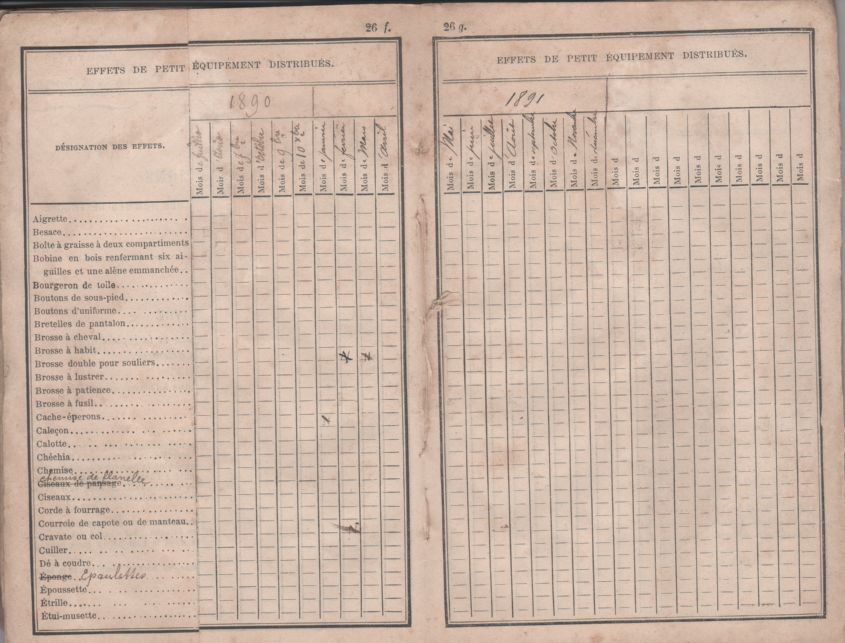 26 f.
EFFETS DE PETIT ÉQUIPEMENT DISTRIBUÉS.
1890
DÉSIGNATION DES EFFETS.
Mois de juillet
Mois d Août
Mois de 7bre
Mois d'Octobre
Mois de 9bre
Mois de 10bre
Mois de janvier
Mois de février
Mois de Mars
Mois d'avril
Aigrette
Besace
Boîte à graisse à deux compartiments
Bobine en bois renfermant six ai-
guilles et une alène emmanchée
Bourgeron de toile
Boutons de sous-pied
Boutons d'uniforme
Bretelles de pantalon
Brosse à cheval
Brosse à habit
Brosse double pour souliers
Brosse à lustrer
Brosse à patience
Brosse à fusil
Cache-éperons
Caleçon
1
Calotte
Chéchia
Chemise
chemise de flanelle
Ciseaux de pansage
Ciseaux
Corde à fourrage
Courroie de capote ou de manteau
Cravate ou col
Cuiller
Dé à coudre
Éponge Epaulettes
Époussette
Étrille
Étui-musette
26 g.
EFFETS DE PETIT ÉQUIPEMENT DISTRIBUÉS.
1891
Mois de Mai
Mois de juin
Mois de juillet
Mois d Août
Mois de septembre
Mois d'octobre
Mois de Novembre
Mois de décembre
Mois d
Mois d
Mois d
Mois d
Mois d
Mois d
Mois d
Mois d
Mois d
Mois d